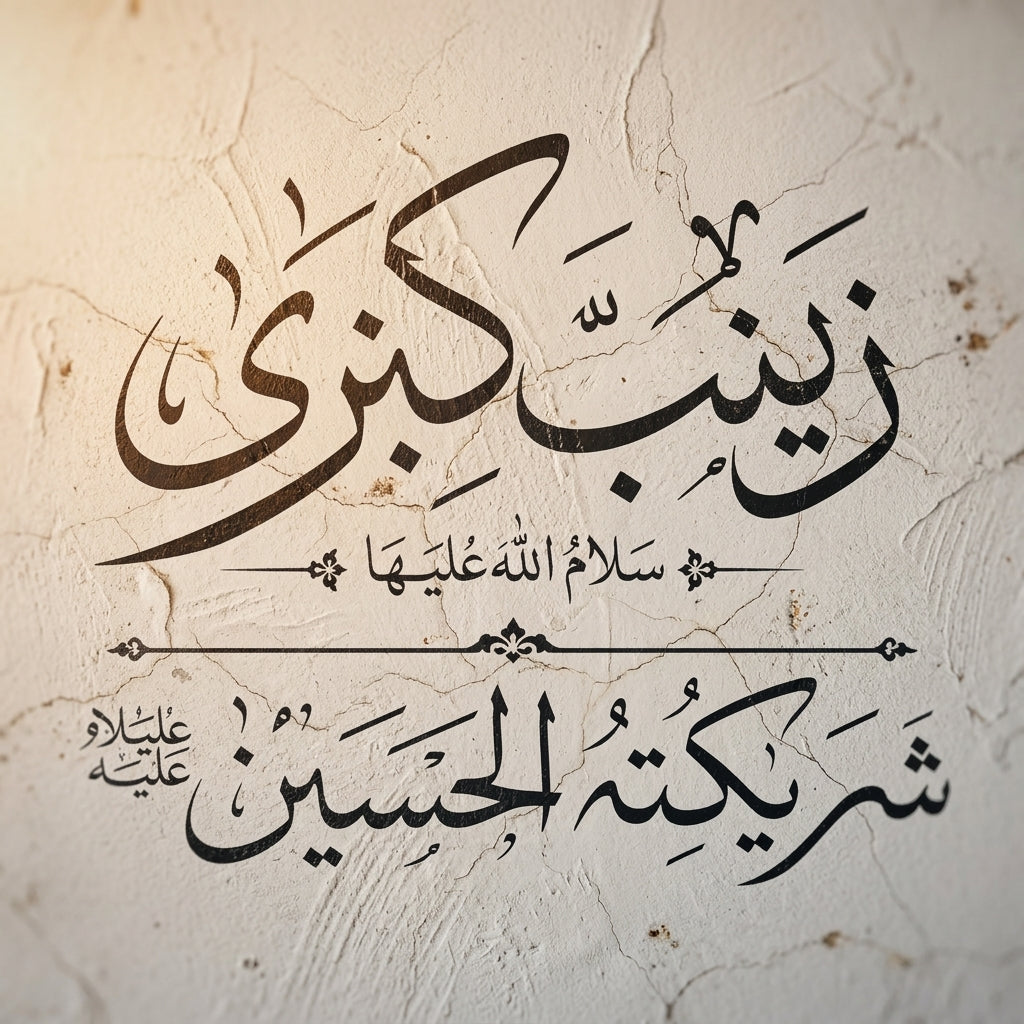 زینب کبری
سَلامُ اللّٰه عُلیَهَا
شریکتهُ الحسین
علیلاو
علیه